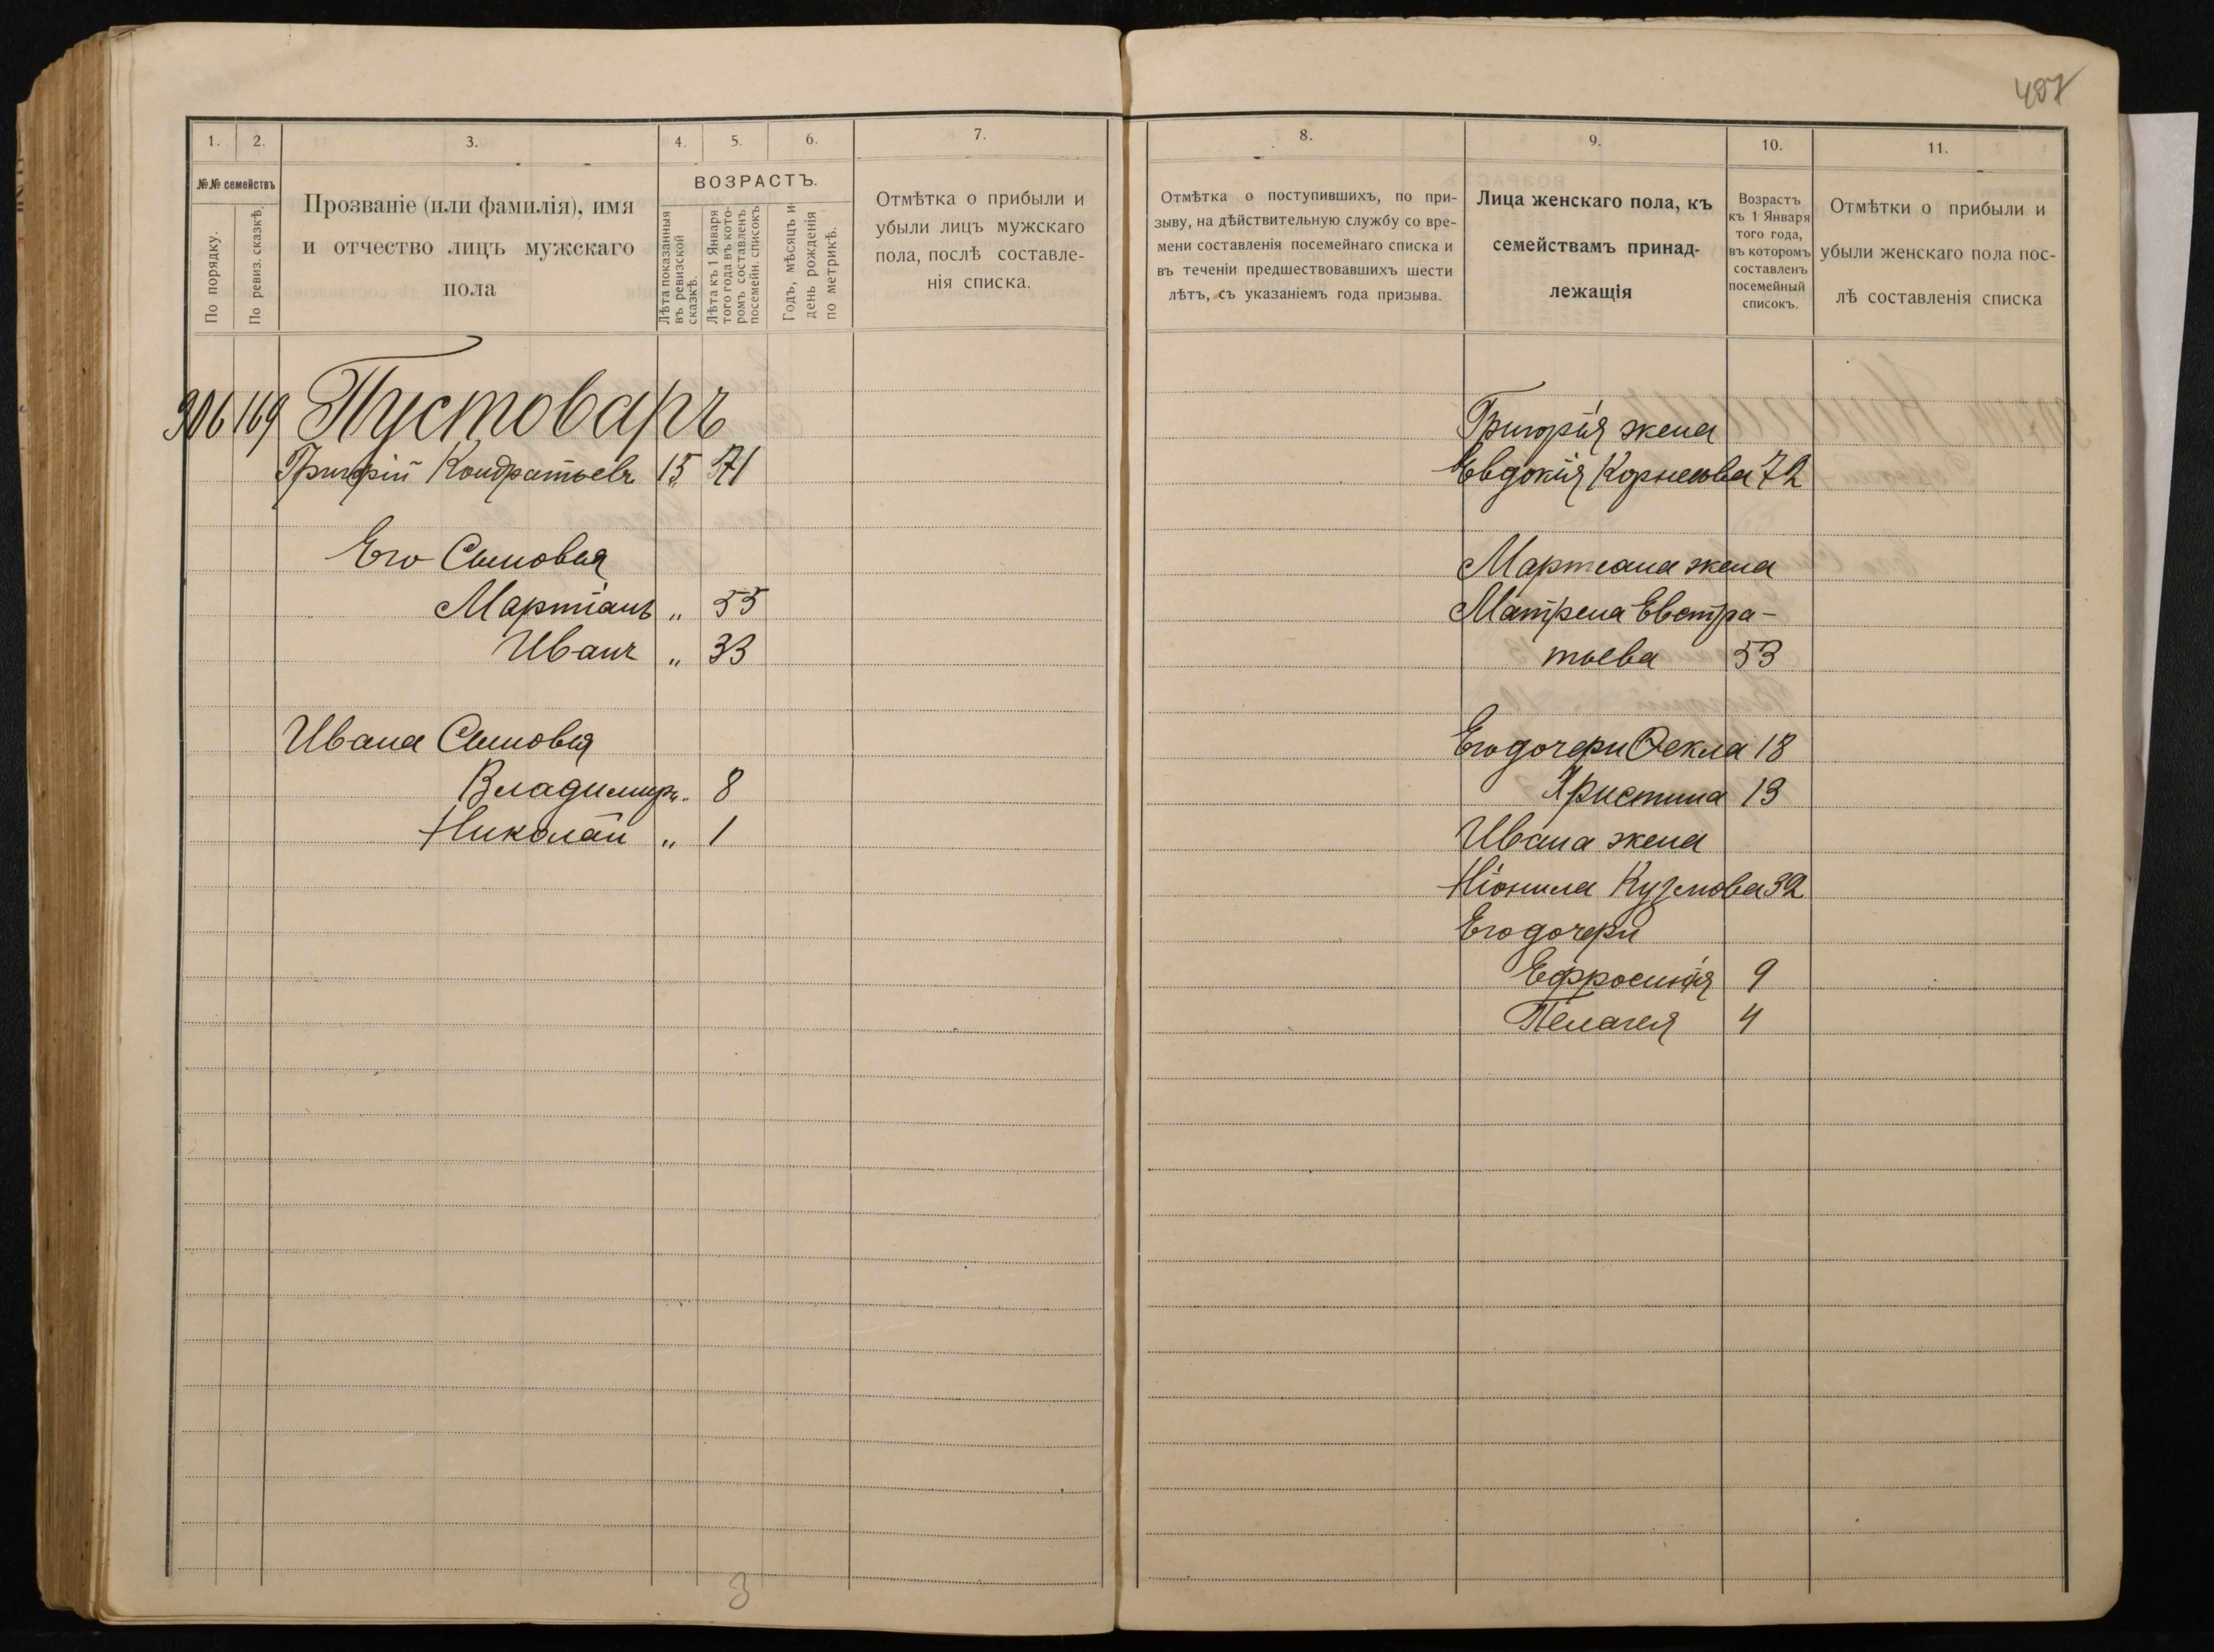 407
1. 2. 3. 4. 5. 6. 7.
№№ семействъ
По порядку.
По ревиз. сказкѣ.
Прозваніе (или фамилія), имя
и отчество лицъ мужскаго
пола
ВОЗРАСТЪ.
Лѣта показанныя
въ ревизской
сказкѣ.
Лѣта къ 1 Января
того года въ кото-
ромъ составленъ
посемейн. списокъ
Годъ, мѣсяцъ и
день рожденія
по метрикѣ.
Отмѣтка о прибыли и
убыли лицъ мужскаго
пола, послѣ составле-
нія списка.
306 169 Пустоваръ
Григорій Кондратьевъ 15 71
Его Сыновья
Мартіанъ „ 55
Иванъ „ 33
Ивана Сыновья
Владимиръ „ 8
Николай „ 1
3
8. 9. 10. 11.
Отмѣтка о поступившихъ, по при-
зыву, на дѣйствительную службу со вре-
мени составленія посемейнаго списка и
въ теченіи предшествовавшихъ шести
лѣтъ, съ указаніемъ года призыва.
Лица женскаго пола, къ
семействамъ принад-
лежащія
Возрастъ
къ 1 Января
того года,
въ которомъ
составленъ
посемейный
списокъ.
Отмѣтки о прибыли и
убыли женскаго пола пос-
лѣ составленія списка
Григорія жена
Евдокія Корнеева 72
Мартеана жена
Матрена Евстра-
тьева 53
Его дочери Ѳекла 18
Христина 13
Ивана жена
Ніонила Кузмова 32
Его дочери
Ефросинія 9
Пелагея 4